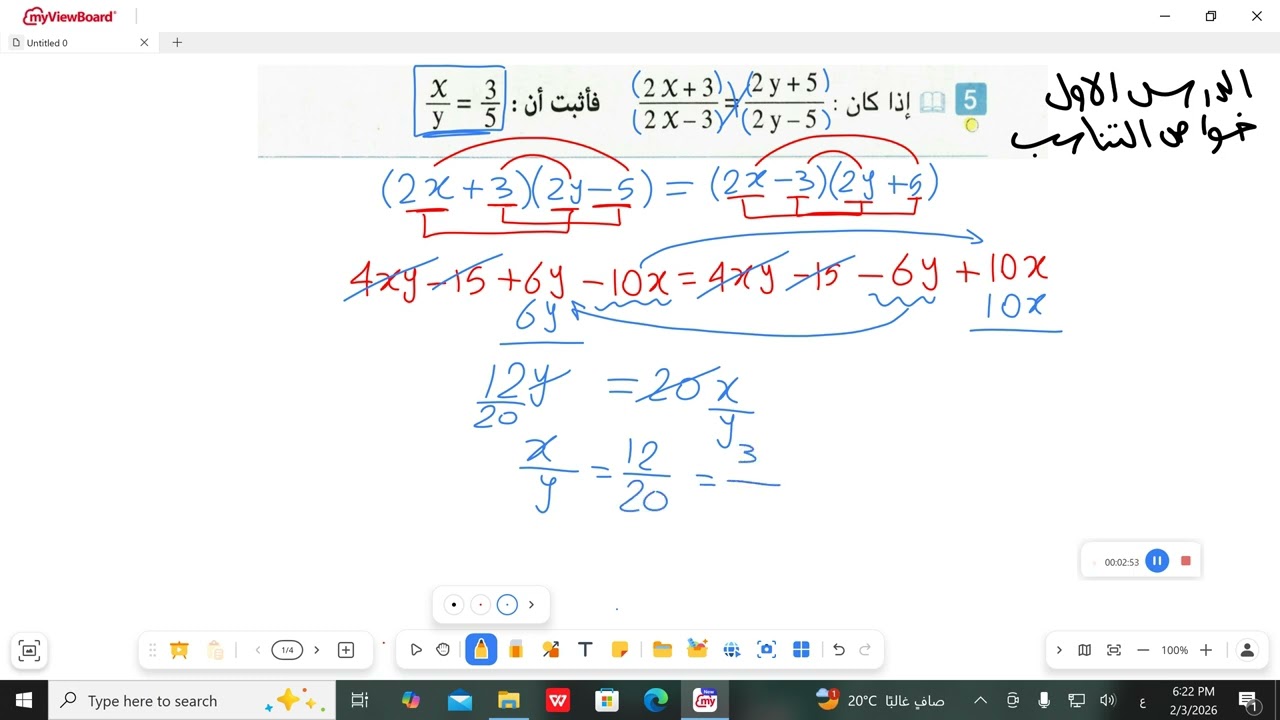 myViewBoard
Untitled 0
5 إذا كان : (2 X + 3)/(2 X − 3) = (2 y + 5)/(2 y − 5) فأثبت أن : x/y = 3/5
الدرس الاول
خواص التناسب
(2x + 3)(2y − 5) = (2x − 3)(2y + 5)
4xy − 15 + 6y − 10x = 4xy − 15 − 6y + 10x
6y 10x
12y/20 = 20x/y
x/y = 12/20 = 3
00:02:53
1/4
T
100%
Type here to search
20°C صافي غالبًا
ع
6:22 PM
2/3/2026